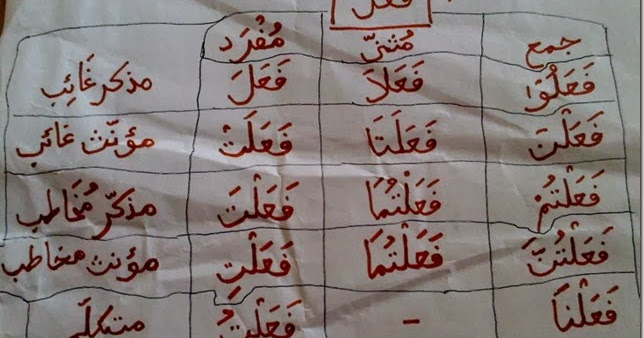 فعل
جمع مُثنىّ مُفْرَد
فَعَلُوْا فَعَلَا فَعَلَ مذكر غَائِب
فَعَلْنَ فَعَلَتَا فَعَلَتْ مؤنّث غائب
فَعَلْتُمْ فَعَلْتُمَا فَعَلْتَ مذكّر مُخَاطب
فَعَلْتُنَّ فَعَلْتُمَا فَعَلْتِ مؤنث مخاطب
فَعَلْنَا - فَعَلْتُ متكلّم